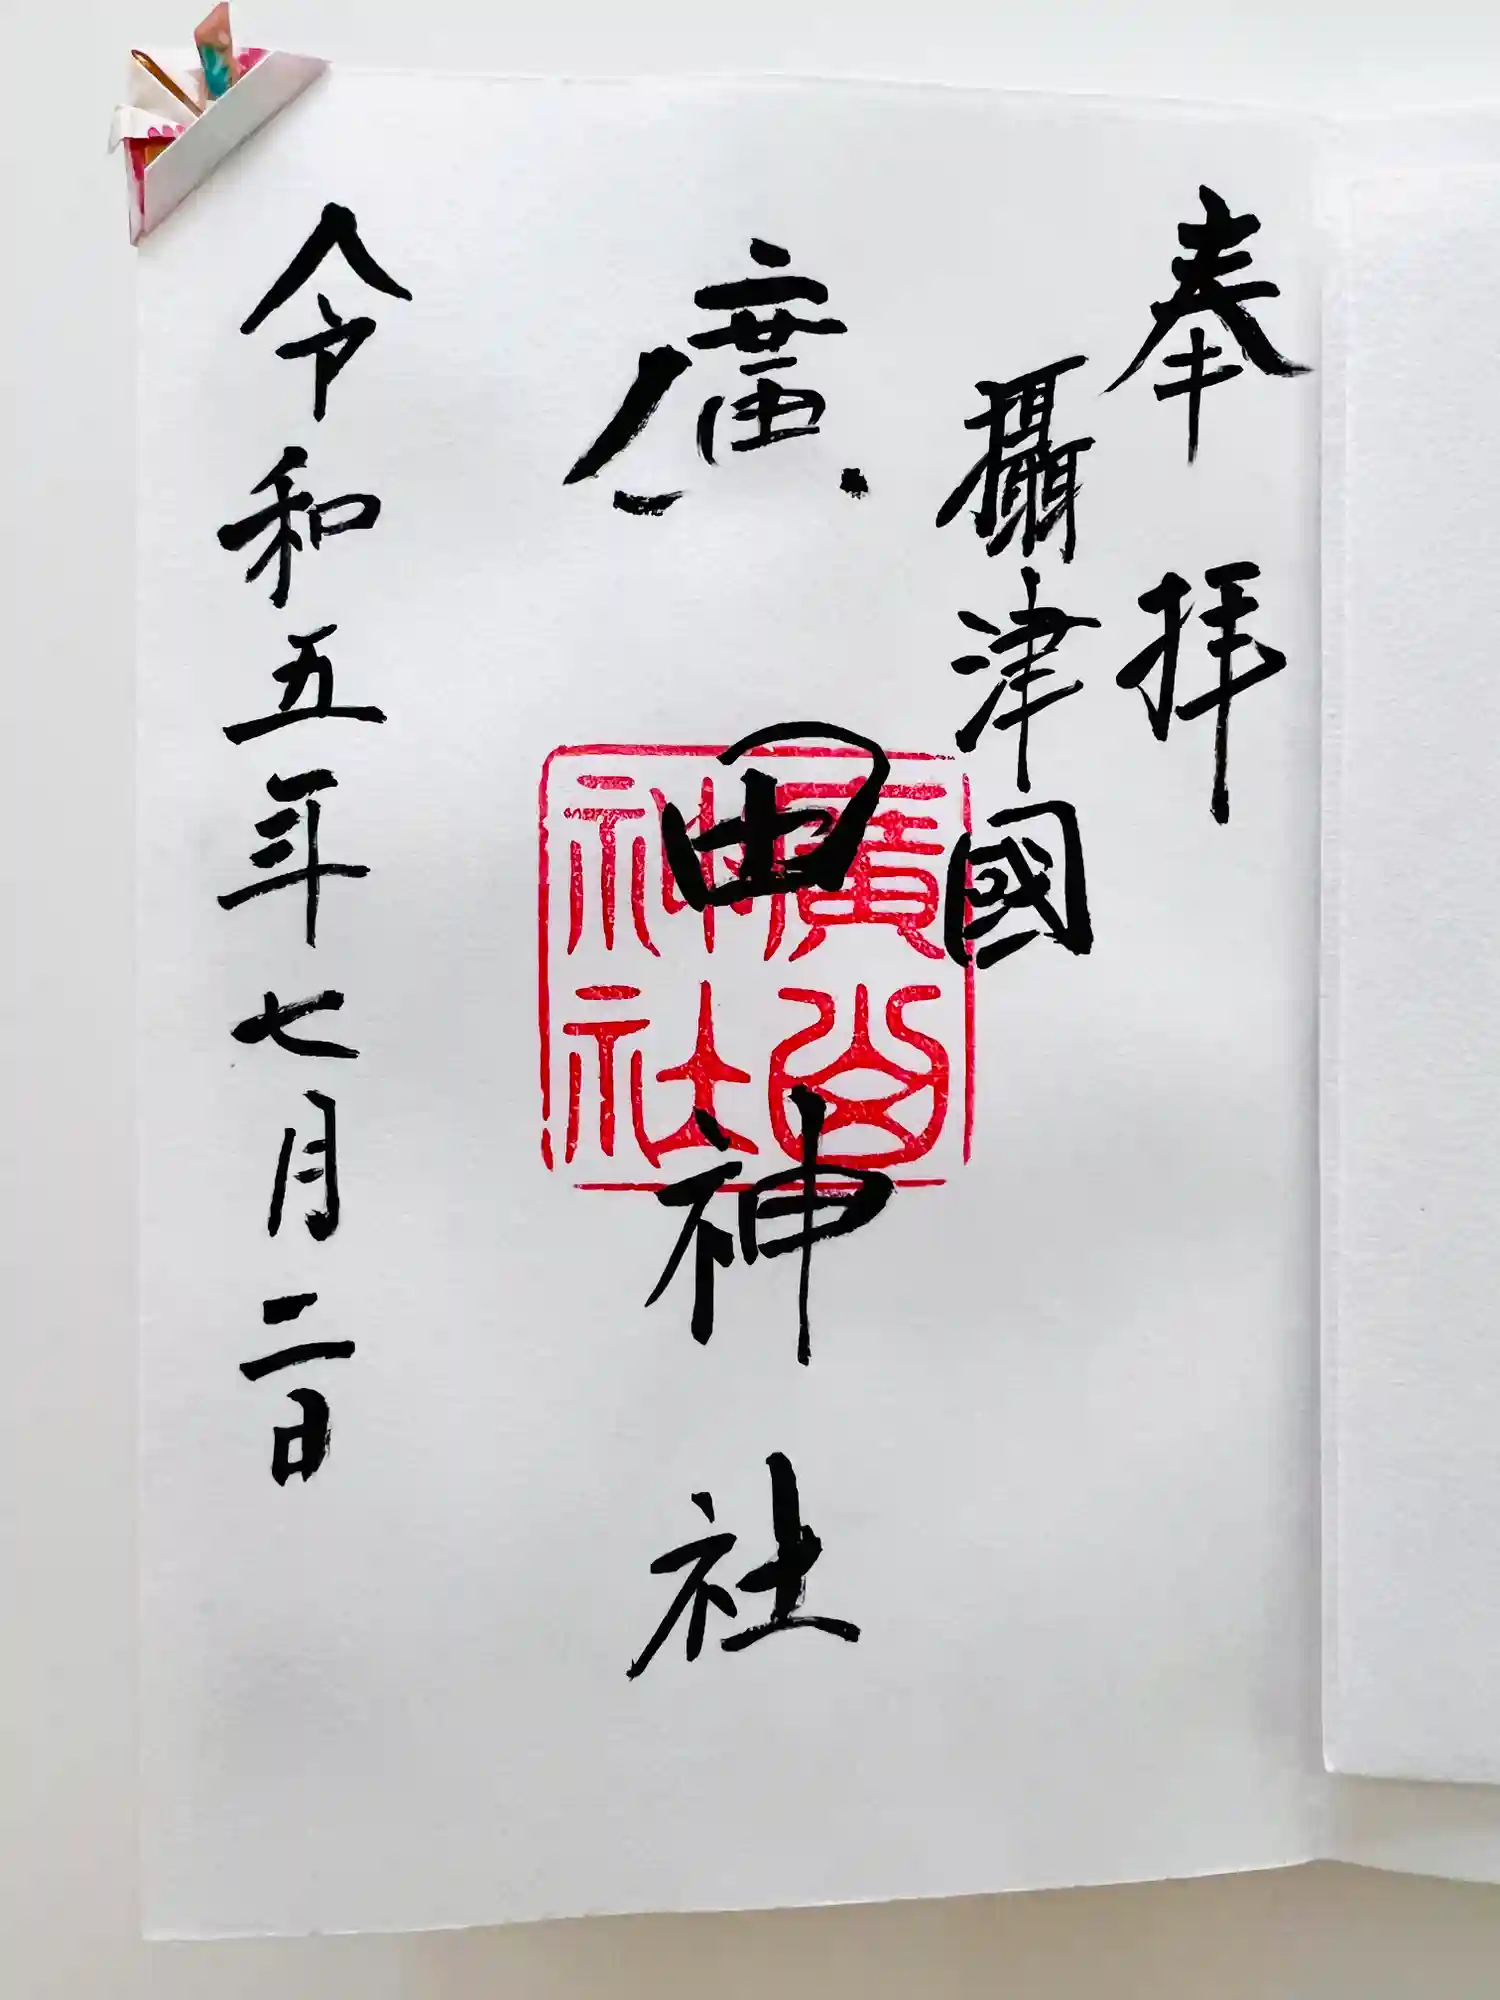 奉拝
攝津國
廣田神社
令和五年七月二日
廣
神社